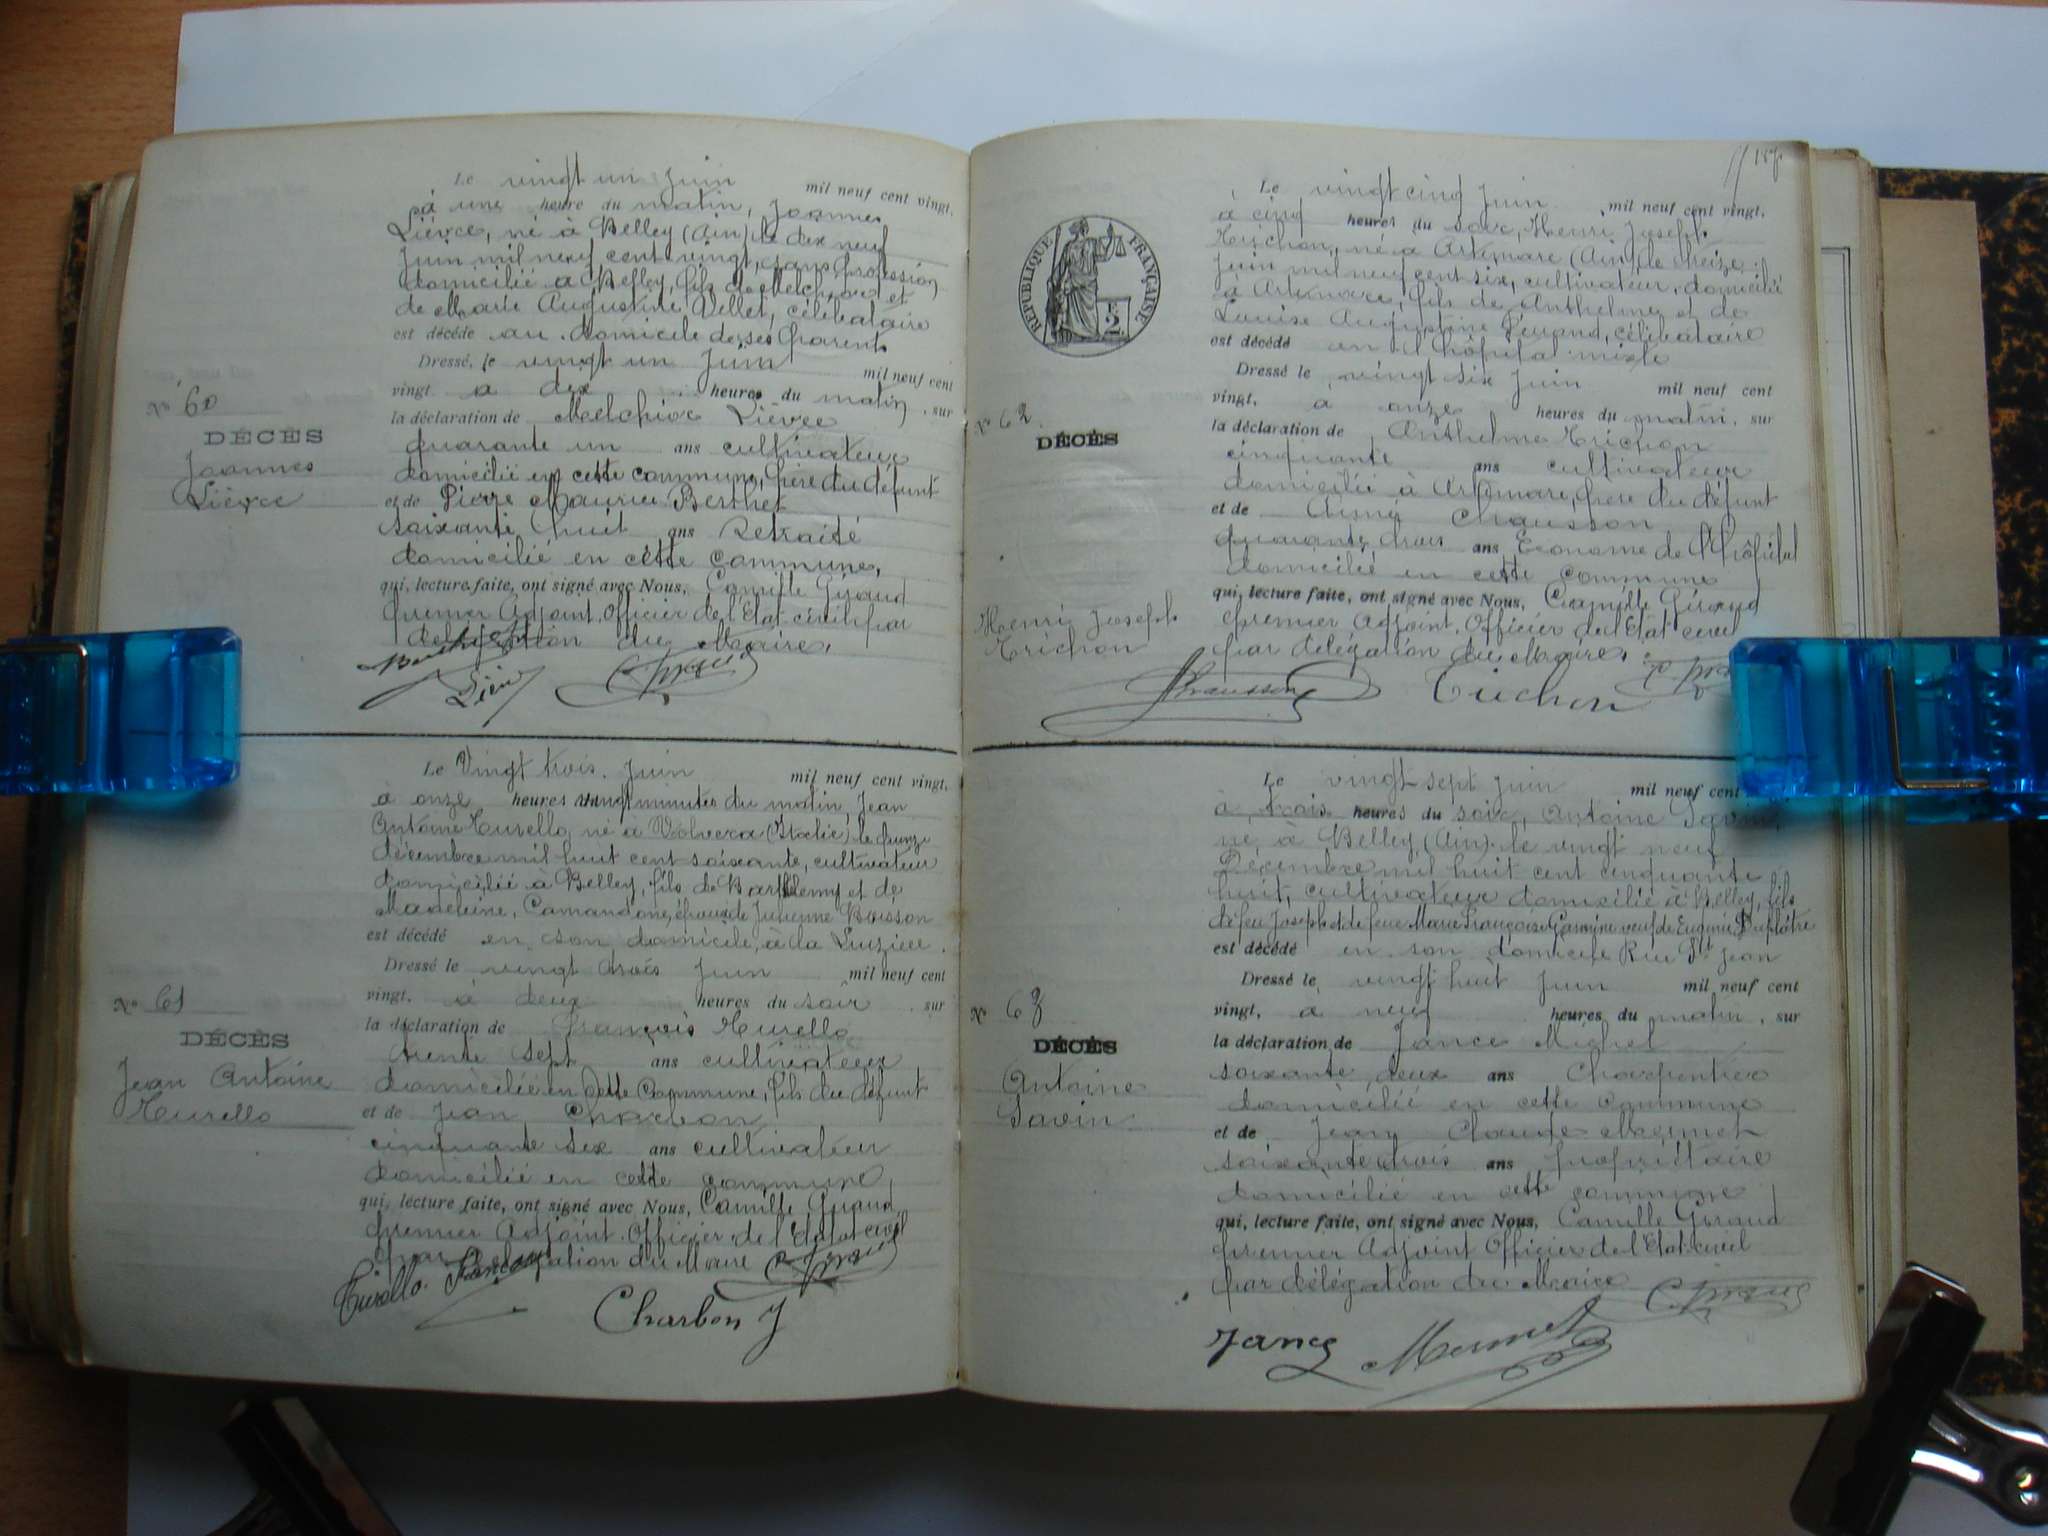 Le vingt un juin mil neuf cent vingt,
à une heure du matin, Joannes
Lièvre, né à Belley (Ain) le dix neuf
juin mil neuf cent vingt, sans profession
domicilié à Belley, fils de Melchior et
de Marie Augustine Vellet, célibataire
est décédé au domicile de ses parents
Dressé, le vingt un juin mil neuf cent
vingt. à dix heures du matin, sur
la déclaration de Melchior Lièvre
quarante un ans cultivateur
domicilié en cette commune, père du défunt
et de Pierre Maurice Berthet
soixante huit ans Retraité
domicilié en cette commune,
qui, lecture faite, ont signé avec Nous, Camille Giraud
premier Adjoint, Officier de l'Etat-civil par
délégation du Maire.
N° 60
DÉCÈS
Joannes
Lièvre
Le Vingt trois juin mil neuf cent vingt,
à onze heures vingt minutes du matin, Jean
Antoine Turello, né à Volvera (Italie) le
décembre mil huit cent soixante, cultivateur
domicilié à Belley, fils de Barthélemy et de
Madeleine, Camandone, époux de Julienne Buisson
est décédé en son domicile, à la
Dressé le vingt trois juin mil neuf cent
vingt. à deux heures du soir, sur
la déclaration de François Turello
trente sept ans cultivateur
domicilié en cette Commune, fils du défunt
et de Jean Charbon,
cinquante six ans cultivateur
domicilié en cette commune,
qui, lecture faite, ont signé avec Nous, Camille Giraud
premier Adjoint. Officier de l'Etat civil
par délégation du Maire
Turello François
Charbon J
N° 61
DÉCÈS
Jean Antoine
Turello
187
Le vingt cinq juin mil neuf cent vingt,
à cinq heures du soir, Henri Joseph
Trichon, né à Artemare (Ain) le treize
juin mil neuf cent six, cultivateur, domicilié
à Artemare, fils de Anthelme et de
Louise Augustine, célibataire
est décédé en l'hôpital mixte
Dressé le vingt six juin mil neuf cent
vingt, à onze heures du matin, sur
la déclaration de Anthelme Trichon
cinquante ans cultivateur
domicilié à Artemare, père du défunt
et de Chausson
quarante trois ans Econome de l'hôpital
domicilié en cette commune
qui, lecture faite, ont signé avec Nous, Camille Giraud
premier Adjoint, Officier de l'Etat civil
par délégation du Maire.
Chausson Trichon
RÉPUBLIQUE FRANÇAISE
2
N° 62
DÉCÈS
Henri Joseph
Trichon
Le vingt-sept juin mil neuf cent
à trois heures du soir, Antoine Savin,
né à Belley, (Ain) le vingt neuf
Décembre mil huit cent cinquante
huit, cultivateur domicilié à Belley, fils
de feu Joseph et de feue Marie Françoise veuf de Eugénie
est décédé en son domicile Rue St Jean
Dressé le, vingt huit juin mil neuf cent
vingt, à neuf heures du matin, sur
la déclaration de Jance Michel
soixante deux ans Charpentier
domicilié en cette commune
et de Jean Claude Mermet
soixante trois ans propriétaire
domicilié en cette commune
qui, lecture faite, ont signé avec Nous, Camille Giraud
premier Adjoint Officier de l'Etat-civil
par délégation du Maire
Jance Mermet
N° 63
DÉCÈS
Antoine
Savin